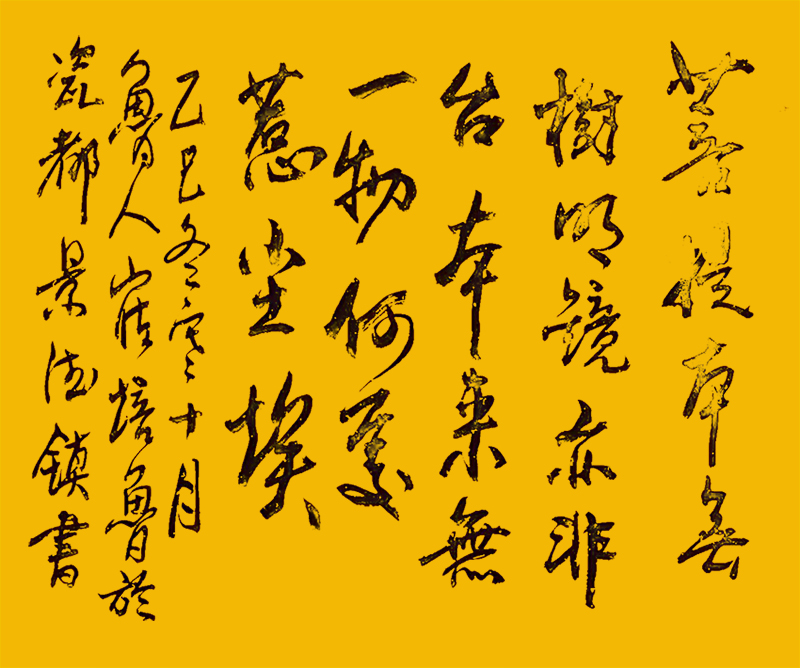 菩提本无
樹明鏡亦非
台本来無
一物何處
惹尘埃
乙巳冬寒十月
魯人宿培魯於
瓷都景德鎮書